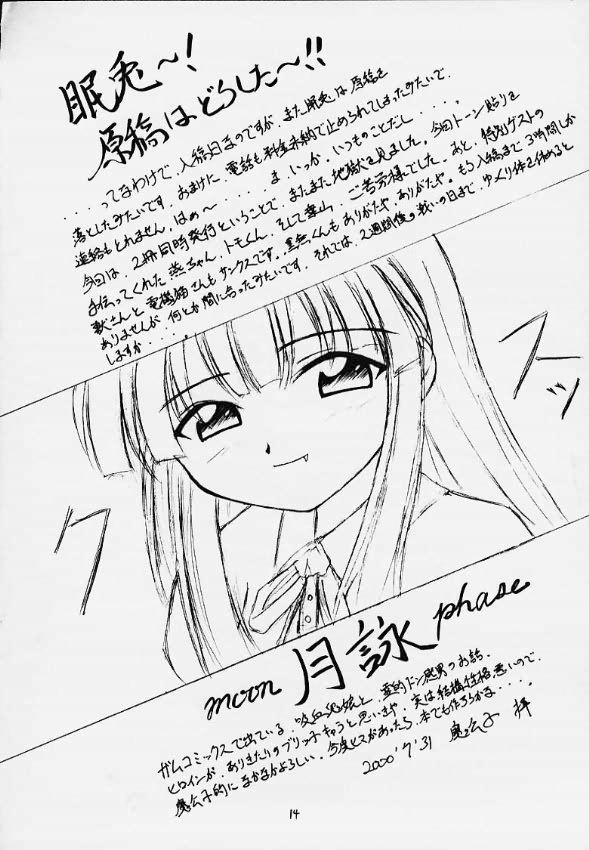 眠兎〜!
原稿はどうした〜!!
・・・・ってなわけで、入稿日なのですが、また眠兎は原稿を
落としたみたいです。おまけに、電話も料金未納で止められてしまったみたいで、
連絡もとれません。はぁ〜・・・・ま、いっか。いつものことだし・・・・。
今回は、2冊同時発行ということで、またまた地獄を見ました。今回トーン貼りを
手伝ってくれた ちゃん、トモくん、そして 山、ご苦労様でした。あと、特別ゲストの
さんと電機猫さんもサンクスです。 くんもありがたや、ありがたや。もう入稿まで3時間しか
ありませんが、何とか間に合ったみたいです。それでは、2週間後の戦いの日まで、ゆっくり体を休めると
しますか・・・・。
クスッ
moon 月詠 phase
ガムコミックスで出ている、吸血鬼娘と、霊的ドン感男のお話。
ヒロインが、ありきたりのブリッ子キャラと思いきや、実は結構性格悪いので、
 子的になかなかよろしい。今度ヒマがあったら、本でも作ろうかな・・・。
2000'7'31 子 拝
14